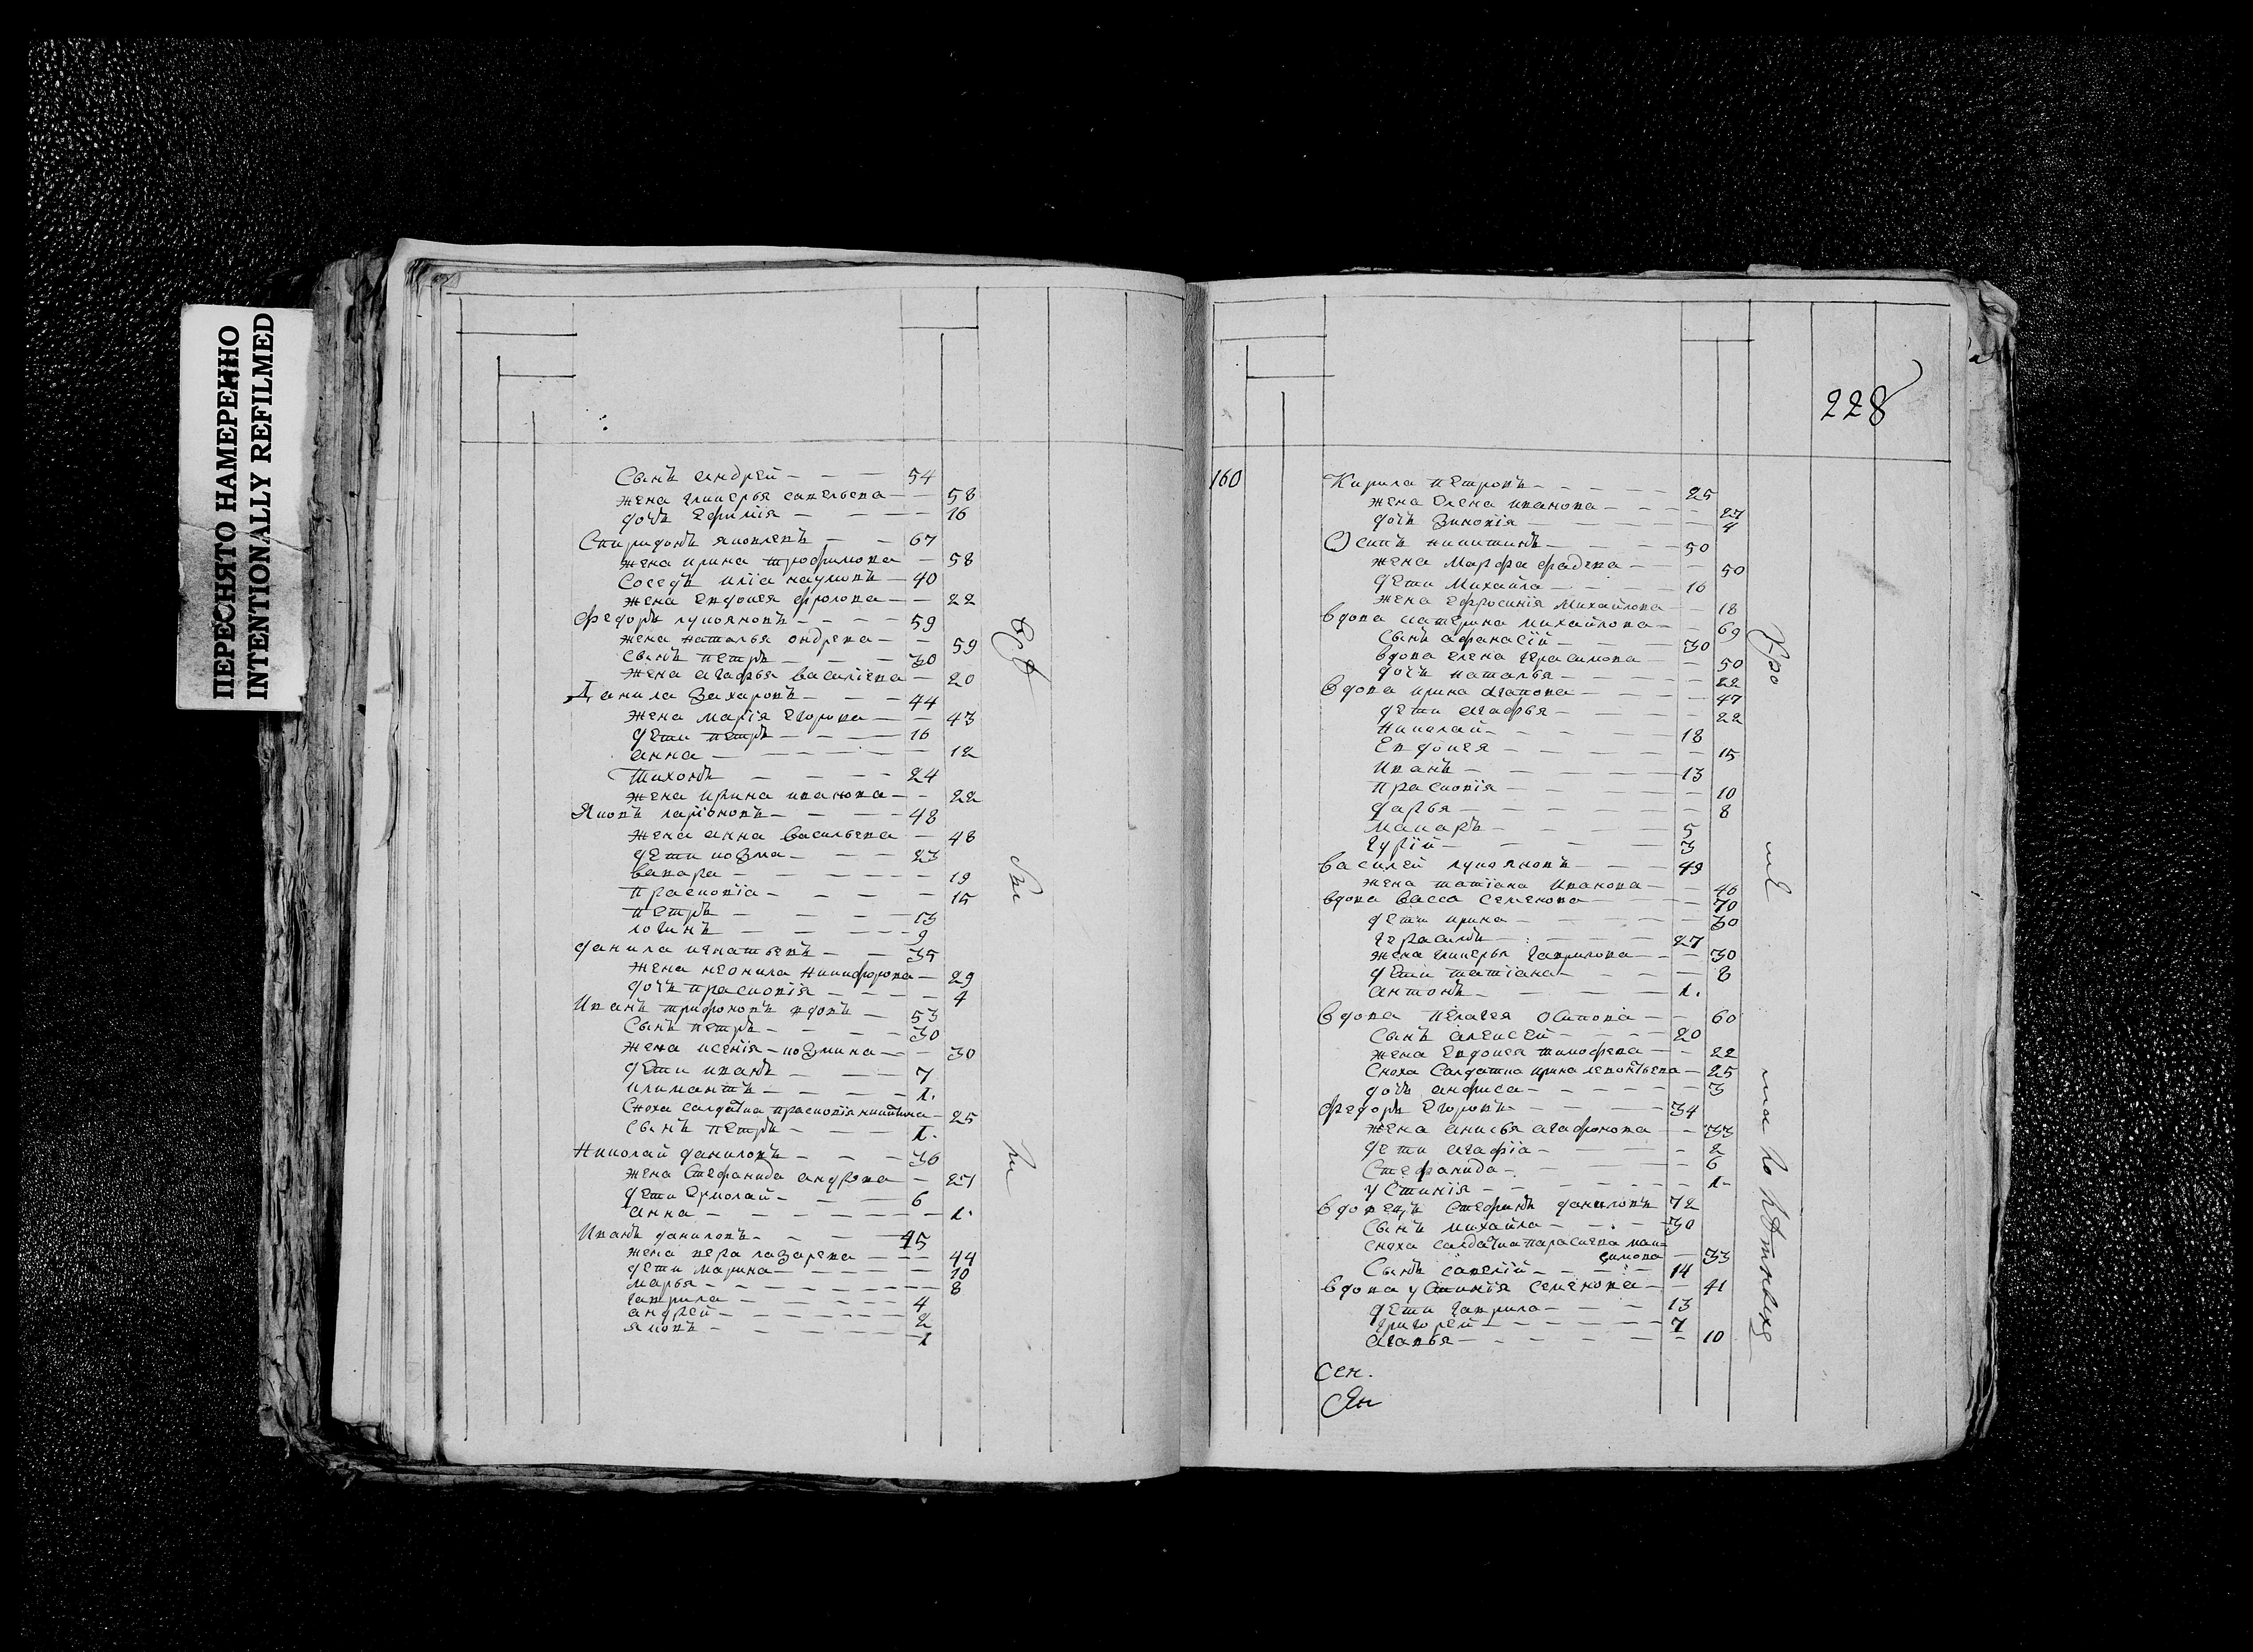 ПЕРЕСНЯТО НАМЕРЕННО
INTENTIONALLY REFILMED
Сынъ андрей 54
жена гликерья савельева 58
дочь Ефимія 16
Спиридонъ яковлевъ 67
жена ирина трофимова 58
Соседъ иліа наумовъ 40
жена Евдокея фролова 22
Федоръ лукояновъ 59
жена наталья ондрева 59
сынъ петръ 30
жена агафья василіева 20
Данила Захаровъ 44
жена марія Егорова 43
дети петръ 16
анна 12
Тихонъ 24
жена ирина иванова 22
Яковъ ларіоновъ 48
жена анна васильева 48
дети козма 23
вавара 19
прасковіа 15
петръ 13
логинъ 9
данила игнатьевъ 35
жена неонила никифорова 29
дочь прасковія 4
Иванъ трифоновъ вдовъ 53
Сынъ петръ 30
жена ксенія козмина 30
дети иванъ 7
климантъ 1.
Сноха салдатка прасковія никитина 25
сынъ петръ 1.
Николай даниловъ 36
жена Стефанида андрева 27
дети Ермолай 6
анна 1.
Иванъ даниловъ 45
жена вера лазарева 44
дети марина 10
марья 8
гаврила 4
андрей 2
яковъ 1
228
160 Кирила петровъ 25
жена Елена иванова 27
дочь Зиновія 4
Осипъ никитинъ 50
жена Марфа фадева 50
дети Михайла 16
жена Ефросинія Михайлова 18
вдова катерина михайлова 69
Сынъ афанасій 30
вдова елена герасимова 50
дочь наталья 22
вдова ирина агапова 47
дети агафья 22
Николай 18
Евдокея 15
Иванъ 13
прасковія 10
дарья 8
Макаръ 5
гурій 3
василей лукояновъ 49
жена татіана Иванова 46
вдова васса Семенова 70
дети ирина 30
герасимъ 27
жена гликерья гаврилова 30
дети татіана 8
антонъ 1.
вдова пелагея Осипова 60
Сынъ алексей 20
жена Евдокея тимофева 22
Сноха Салдатка ирина леонтьева 25
дочь анфиса 3
Федоръ Егоровъ 34
жена анисья агафонова 33
дети агафіа 2
Стефанида 6
устинія 1
вдовецъ Стефанъ даниловъ 72
Сынъ михайла 30
сноха салдатка парасκева мак=
симова 33
Сынъ савелій 14
вдова устинія Семенова 41
дети гаврила 13
григорей 7
агапья 10